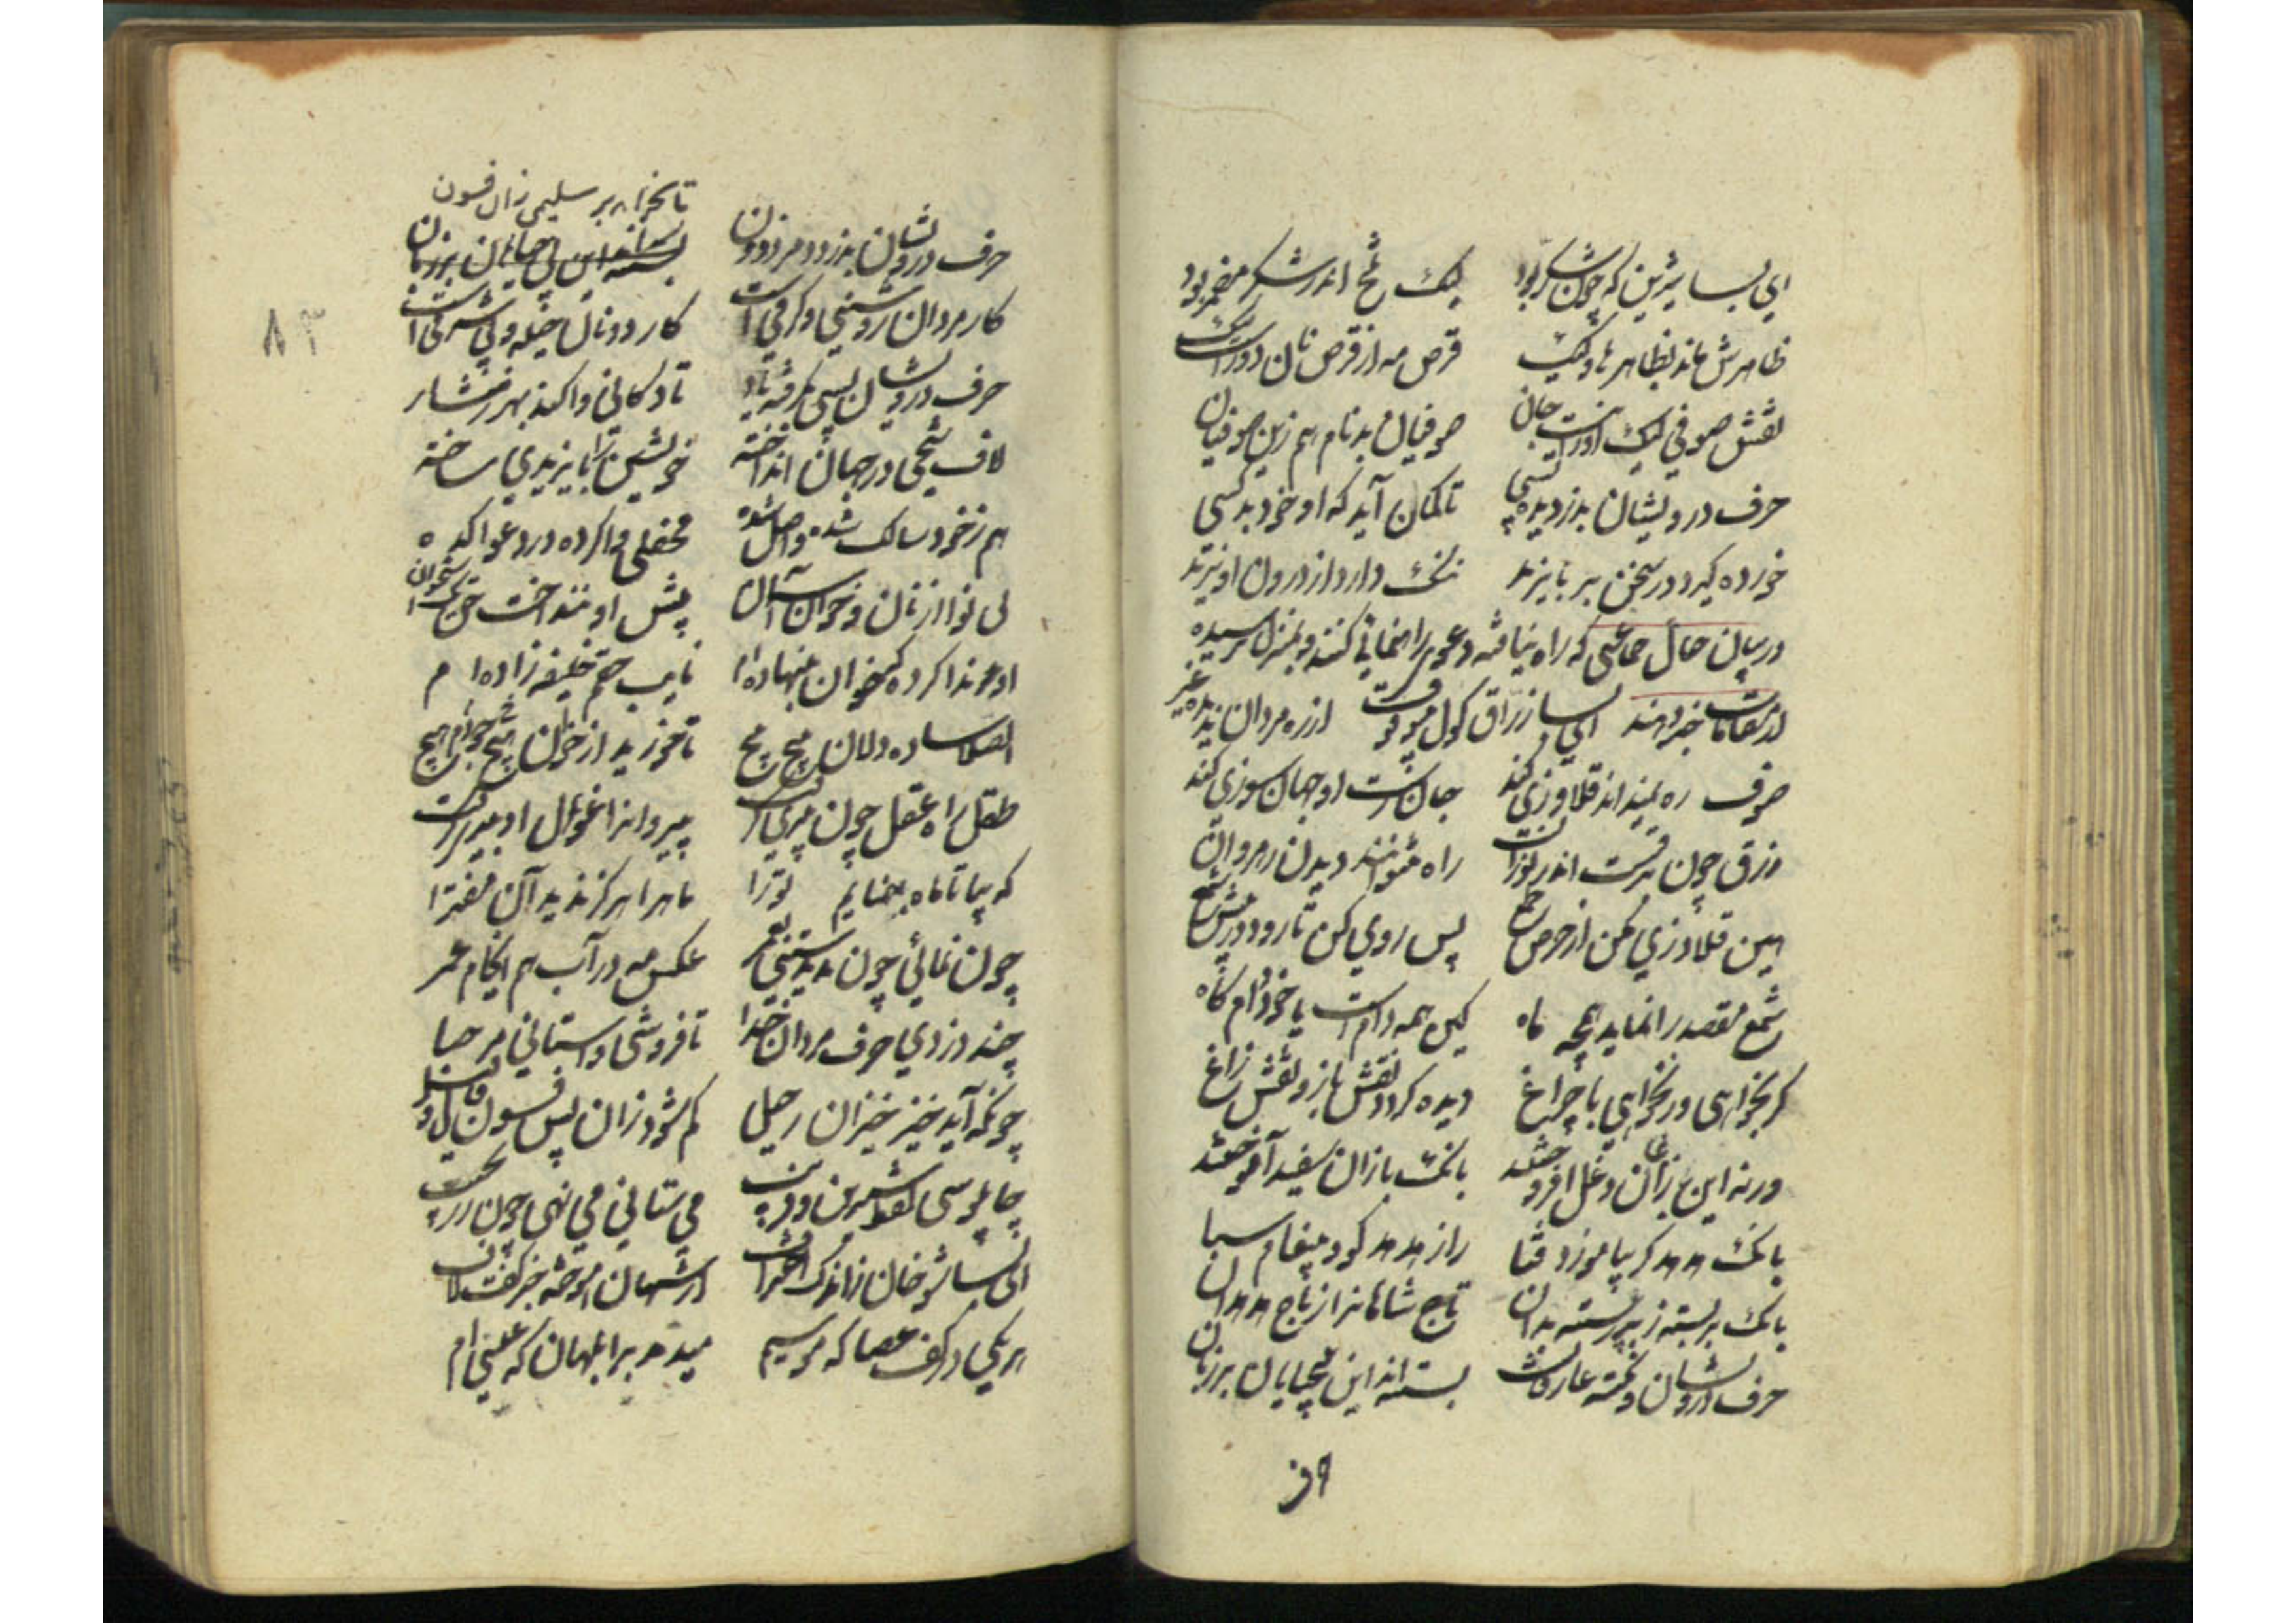 ای بسا شیرین که چون شکر بود
لیک تلخ اندر شکر مضمر بود
ظاهرش ماند بظاهرها ولیک
قرص مه از قرص نان دورست نیک
نقش صوفی لیک او را نیست جان
صوفیان بدنام هم زین صوفیان
حرف درویشان بدزدیده بسی
تا گمان آید که او خود بد کسی
خورده گیرد در سخن بر بایزید
ننگ دارد از درون او یزید
در بیان حال جماعتی که راه نیافته دعوی راهنمائی کنند و بمنزل نرسیده
از مقامات خبر دهند ای بسا زراق کول بی وقوف از ره مردان ندیده غیر
صوف ره نمیداند قلاوزی کند
جان زشت او جهان سوزی کند
رزق چون برقست اندر نور آن
راه نتوانند دیدن رهروان
هین قلاوزی مکن از حرص جمع
پس روی کن تا رود در پیش شمع
شمع مقصد را نماید همچو ماه
کین همه دامست یا خود دام کاه
گر بخواهی ور نخواهی با چراغ
دیده گردد نقش باز و نقش زاغ
ورنه این زاغان دغل افروختند
بانگ بازان سفید آموختند
بانگ هدهد گر بیاموزد فتا
راز هدهد کو و پیغام سبا
بانگ بر بسته ز بر رسته بدان
تاج شاهانرا ز تاج هدهدان
حرف درویشان و نکته عارفان
بسته اند این بیحیایان بر زبان
حرف درویشان بدزدد مرد دون
تا بخواند بر سلیمی زان فسون
کار مردان روشنی و گرمی است
کار دونان حیله و بی شرمی است
حرف درویشان بسی گرفته یاد
تا دکانی وا کند بهر
لاف شیخی در جهان انداخته
خویشتن را بایزیدی ساخته
هم ز خود سالک شده واصل شده
محفلی وا کرده در دعوا کده
بی نوا از نان و خوان آسمان
پیش او ننداخت حق یک استخوان
او ندا کرده که خوان بنهاده ام
نایب حقم خلیفه زاده ام
الصلا ساده دلان پیچ پیچ
تا خورید از خوان جودم هیچ هیچ
طفل راه عقل چون پیری گرفت
پیروانرا غول ادبیری گرفت
که بیا تا ماه بنمایم ترا
ماه را هرگز ندید آن مفترا
چون نمائی چون ندیدستی بعمر
عکس مه در آب هم ای خام غمر
چند دزدی حرف مردان خدا
تا فروشی و استانی مرحبا
چونکه آید خیز خیزان رحیل
گم شود زان پس فسون قال و قیل
می ستانی می نهی چون زر بجیب
ای بسا شوخان ز اندک احتراف
از شهان ناموخته جز گفت و لاف
هر یکی در کف عصا که موسیم
میدمد بر ابلهان که عیسی ام
۸۳